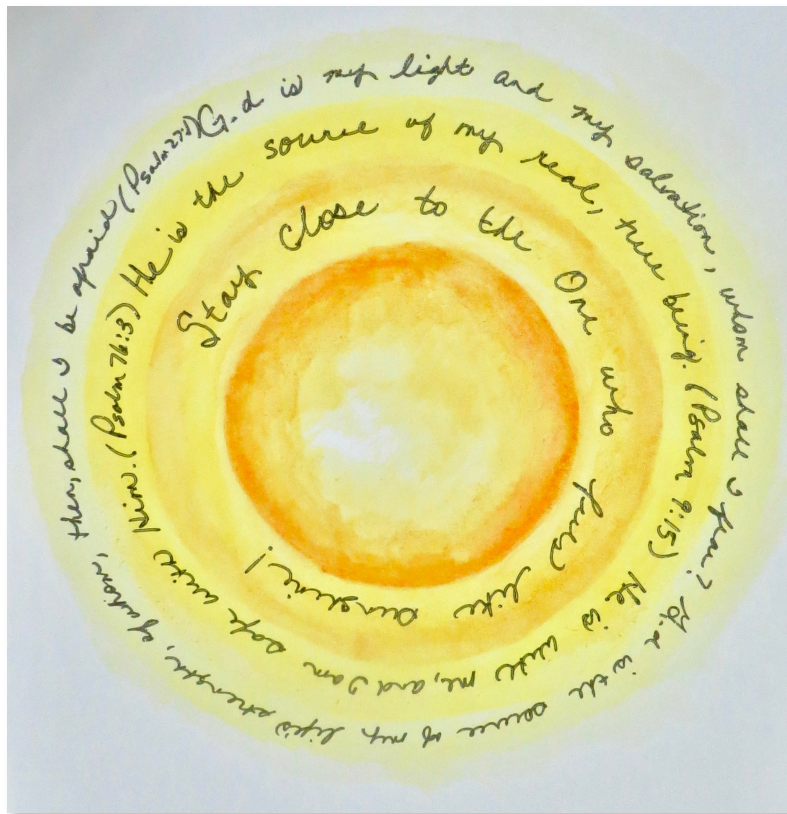 G-d is my light and my salvation, whom shall I fear? G-d is the source of my life's strength, of whom, then, shall I be afraid (Psalm 27:1)
He is the source of my real, true being. (Psalm 9:15) He is with me, and I am safe with Him. (Psalm 76:3)
Stay close to the One who feels like sunshine!